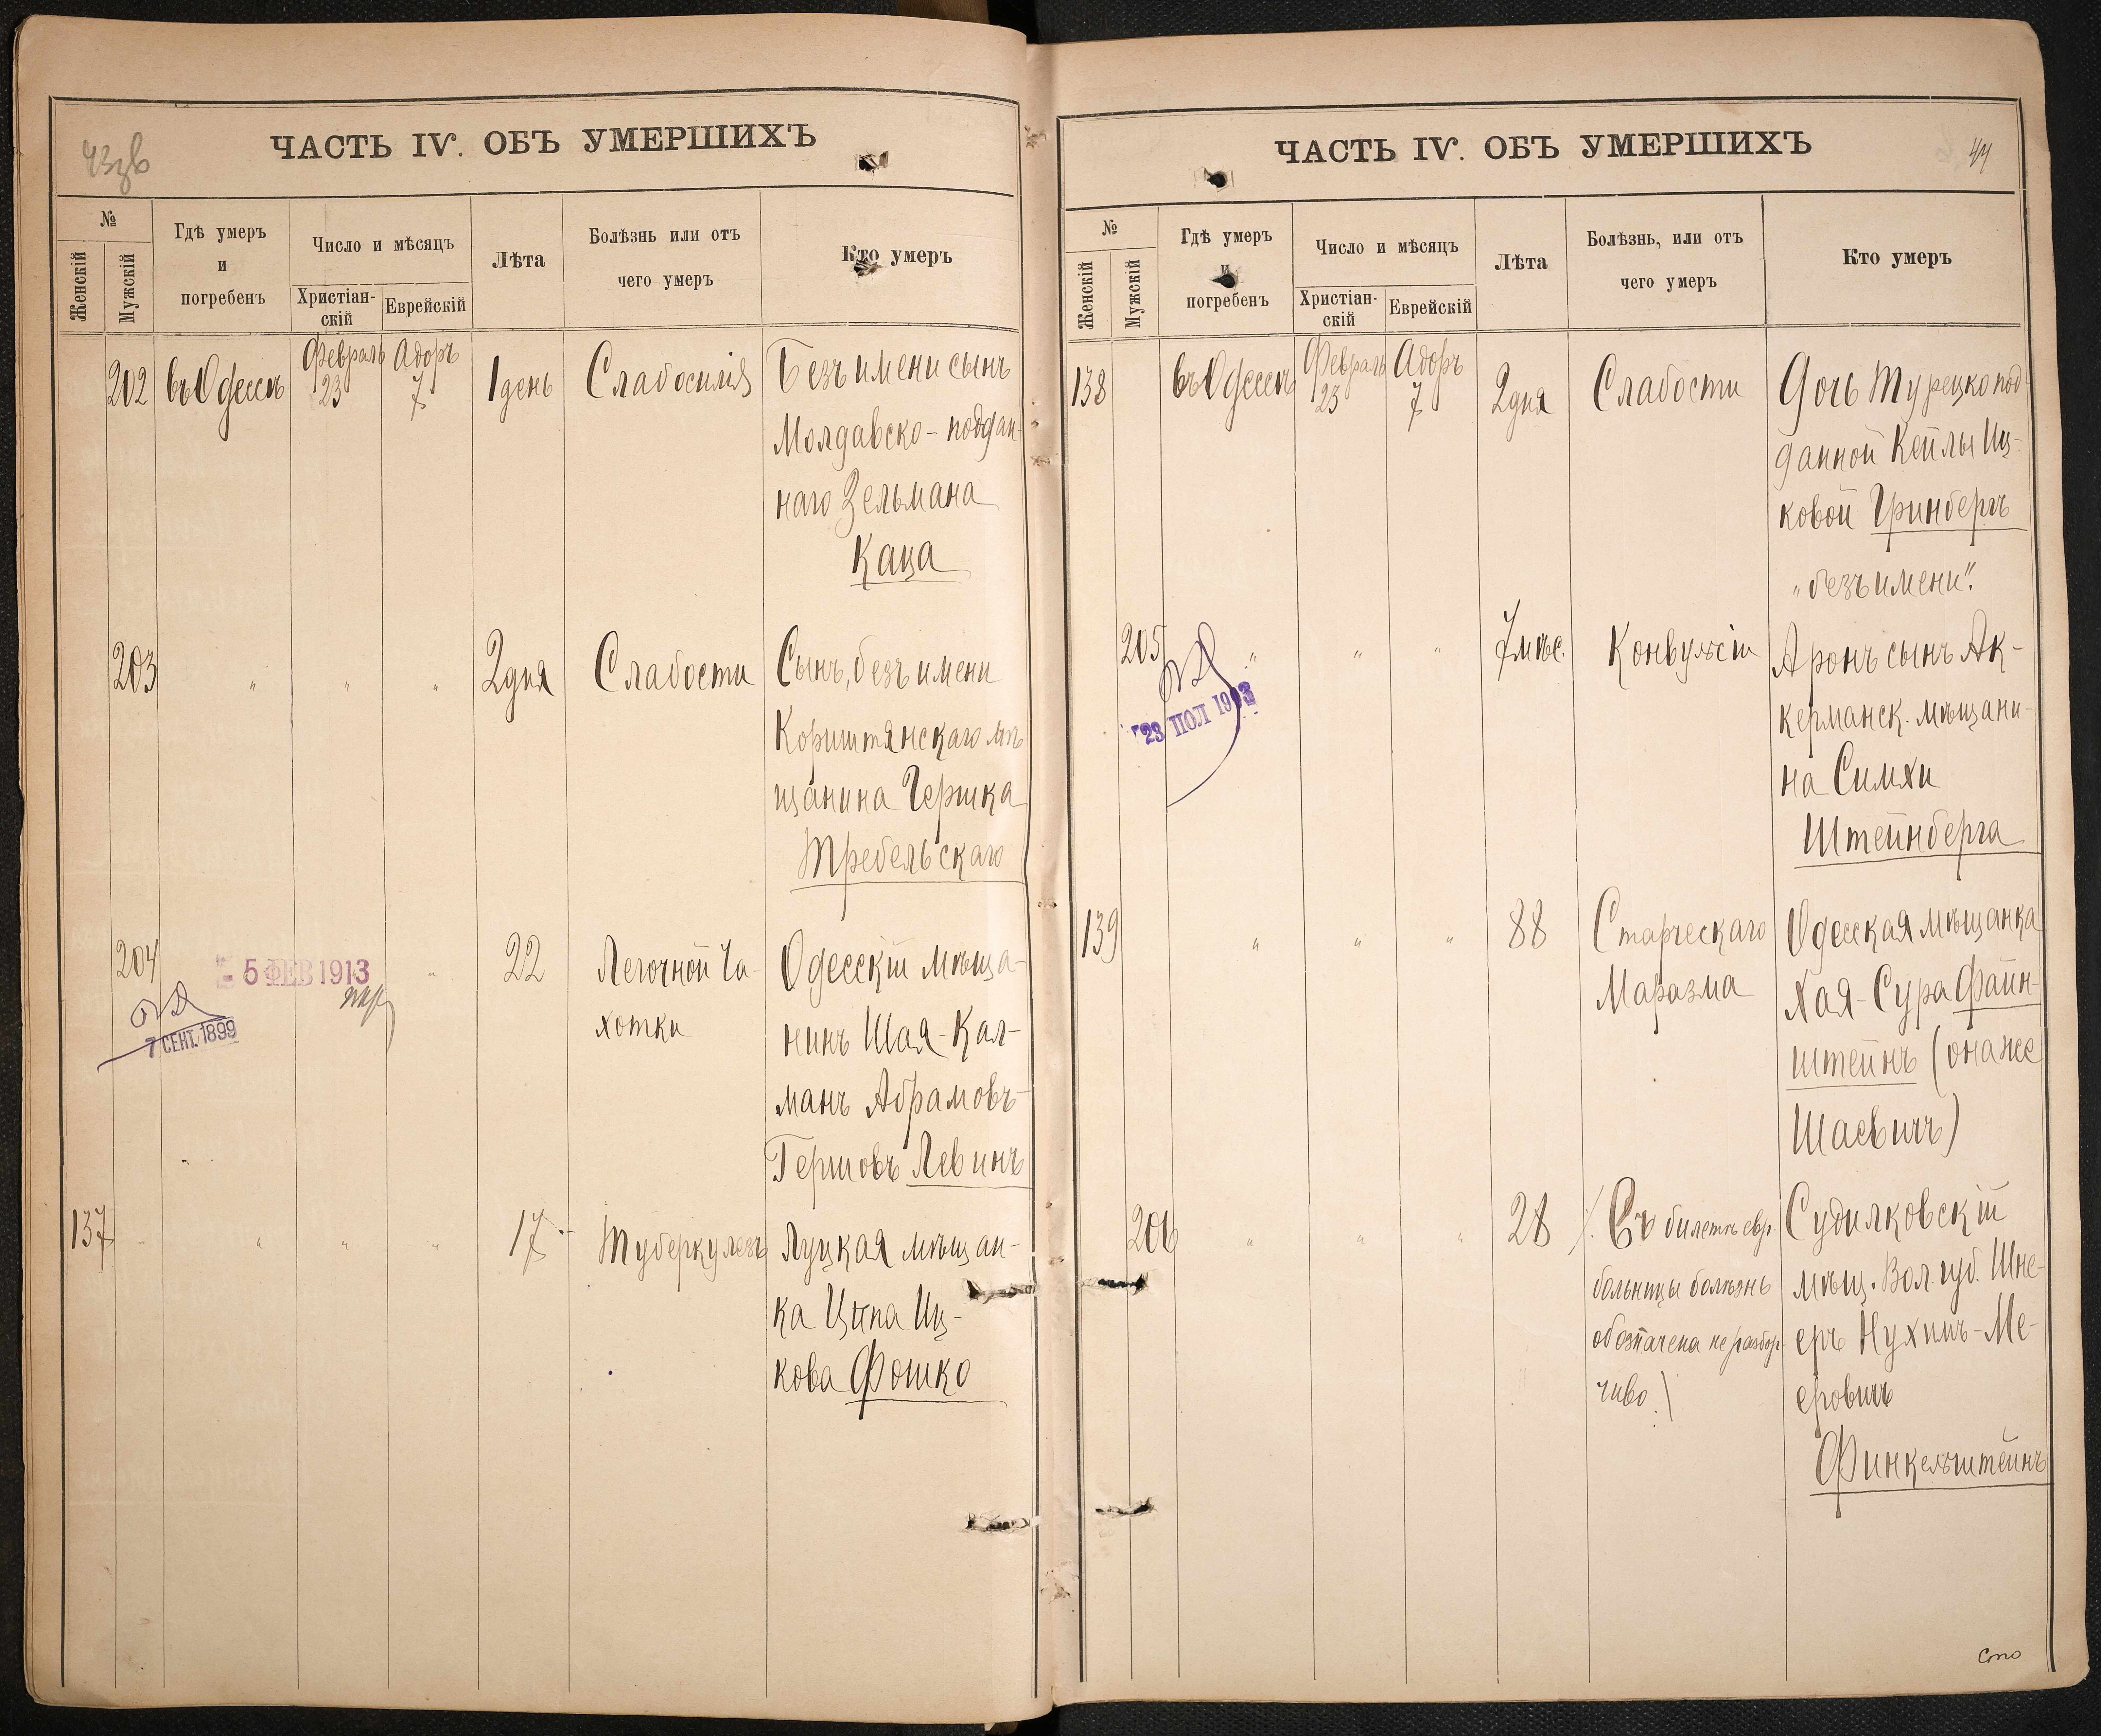 43зв
ЧАСТЬ IV. ОБЪ УМЕРШИХЪ
№
Женскій
Мужскій
Гдѣ умеръ
и
погребенъ
Число и мѣсяцъ
Христіан-
скій
Еврейскій
Лѣта
Болѣзнь или отъ
чего умеръ
Кто умеръ
202
въ Одессѣ
Февраль
23
Адоръ
7
1 день
Слабосилія
Безъ имени сынъ
Молдавско-поддан-
наго Зельмана
Каца
203
"
"
"
2 дня
Слабости
Сынъ, безъ имени
мѣ
щанина Гершка
Требельскаго
204
5 ФЕВ 1913
7 СЕНТ. 1899
"
22
Легочной Ча-
хотки
Одесскій мѣща-
нинъ Шая-Кал-
манъ Абрамовъ-
Гершовъ Левинъ
137
"
"
"
17
Туберкулезъ
Луцкая мѣщан-
ка Ципа Иц-
кова Фошко
ЧАСТЬ IV. ОБЪ УМЕРШИХЪ
44
№
Женскій
Мужскій
Гдѣ умеръ
и
погребенъ
Число и мѣсяцъ
Христіан-
скій
Еврейскій
Лѣта
Болѣзнь, или отъ
чего умеръ
Кто умеръ
138
въ Одессѣ
Февраль
23
Адоръ
7
2 дня
Слабости
Дочь Турецкопод-
данной Кейлы Иц-
ковой Гринбергъ
"безъ имени".
205
23 ІЮЛ 1903
"
"
"
7 мѣс.
Конвульсіи
Аронъ сынъ Ак-
керманск. мѣщани-
на Симхи
Штейнберга
139
"
"
"
88
Старческаго
Маразма
Одесская мѣщанка
Хая-Сура Файн-
штейнъ (она же
Шаевичъ)
206
"
"
"
28
Въ билетѣ евр.
больницы болѣзнь
обозначена не разбор-
чиво)
Судилковскій
мѣщ. Вол. губ. Шне-
еръ Нухимъ-Ме-
еровичъ
Финкельштейнъ